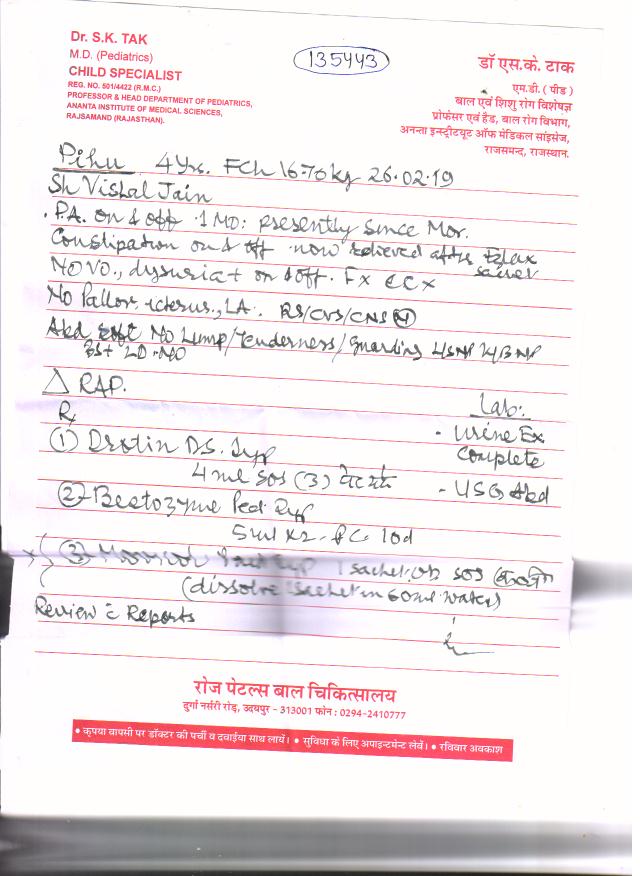 Dr. S.K. TAK
M.D. (Pediatrics)
CHILD SPECIALIST
REG. NO. 501/4422 (R.M.C.)
PROFESSOR & HEAD DEPARTMENT OF PEDIATRICS,
ANANTA INSTITUTE OF MEDICAL SCIENCES,
RAJSAMAND (RAJASTHAN).
135443
डॉ एस.के. टाक
एम.डी. ( पीड )
बाल एवं शिशु रोग विशेषज्ञ
प्रोफेसर एवं हैड, बाल रोग विभाग,
अनन्ता इन्स्टीटयूट ऑफ मेडिकल साइंसेज,
राजसमन्द, राजस्थान.
Pihu 4 Yrs. FCh 16.70kg 26.02.19
Sh Vishal Jain
. P.A. on & off 1 MO: presently since Mor.
Constipation on & off now relieved after
sachet
NO VO., dysuria + on & off. Fx CCx
No Pallor, icterus, LA. RS/CVS/CNS N
Abd soft No Lump/Tenderness/Guarding
BS+
△ RAP.
Rx
Lab:
- Urine Ex
Complete
- USG Abd
① Drotin D.S. Syp
4 ml SOS (3) पेट दर्द
② Bestozyme Ped Syp
5ml x2 PC 10d
③ 1 sachet SOS
(dissolve 1 sachet in 60ml water)
Review c̄ Reports
रोज पेटल्स बाल चिकित्सालय
दुर्गा नर्सरी रोड़, उदयपुर - 313001 फोन : 0294-2410777
• कृपया वापसी पर डॉक्टर की पर्ची व दवाईया साथ लायें। • सुविधा के लिए अपाइन्टमेन्ट लेवें। • रविवार अवकाश